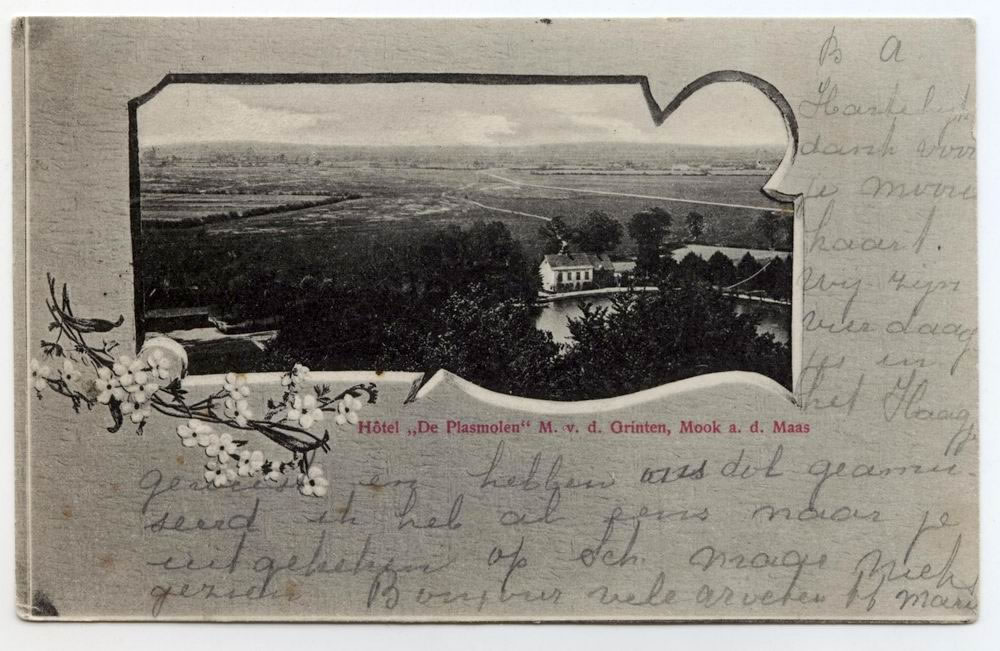 B A
Hartelijk
dank voor
je mooie
kaart.
Wij zijn
vier daag
in
het Haag
Hôtel „De Plasmolen“ M. v. d. Grinten, Mook a. d. Maas
geweest en hebben ons dol geamu-
seerd ik heb al eens naar je
uitgekeken op Sch. maar niet
gezien. Bonjour vele groeten